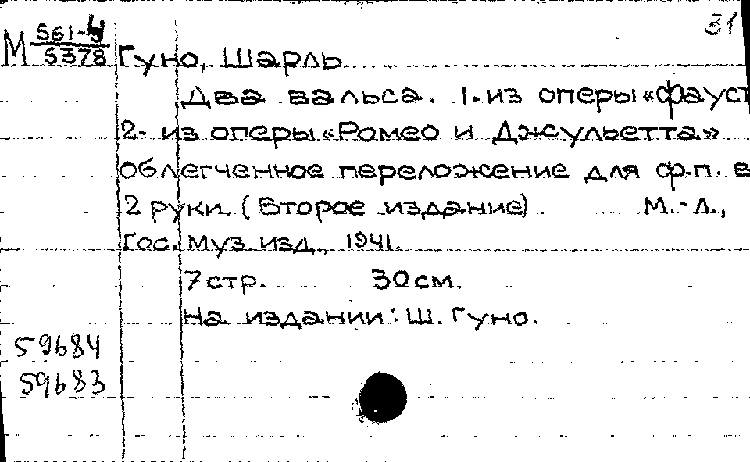 31
М 561-4
5378
Гуно, Шарль
Два вальса. 1. из оперы «Фауст
2. из оперы «Ромео и Джульетта»
облегченное переложение для ф.п. в
2 руки. (Второе издание). М.-Л.,
Гос. муз. изд., 1941.
7 стр. 30 см.
На издании: Ш. Гуно.
59684
59683